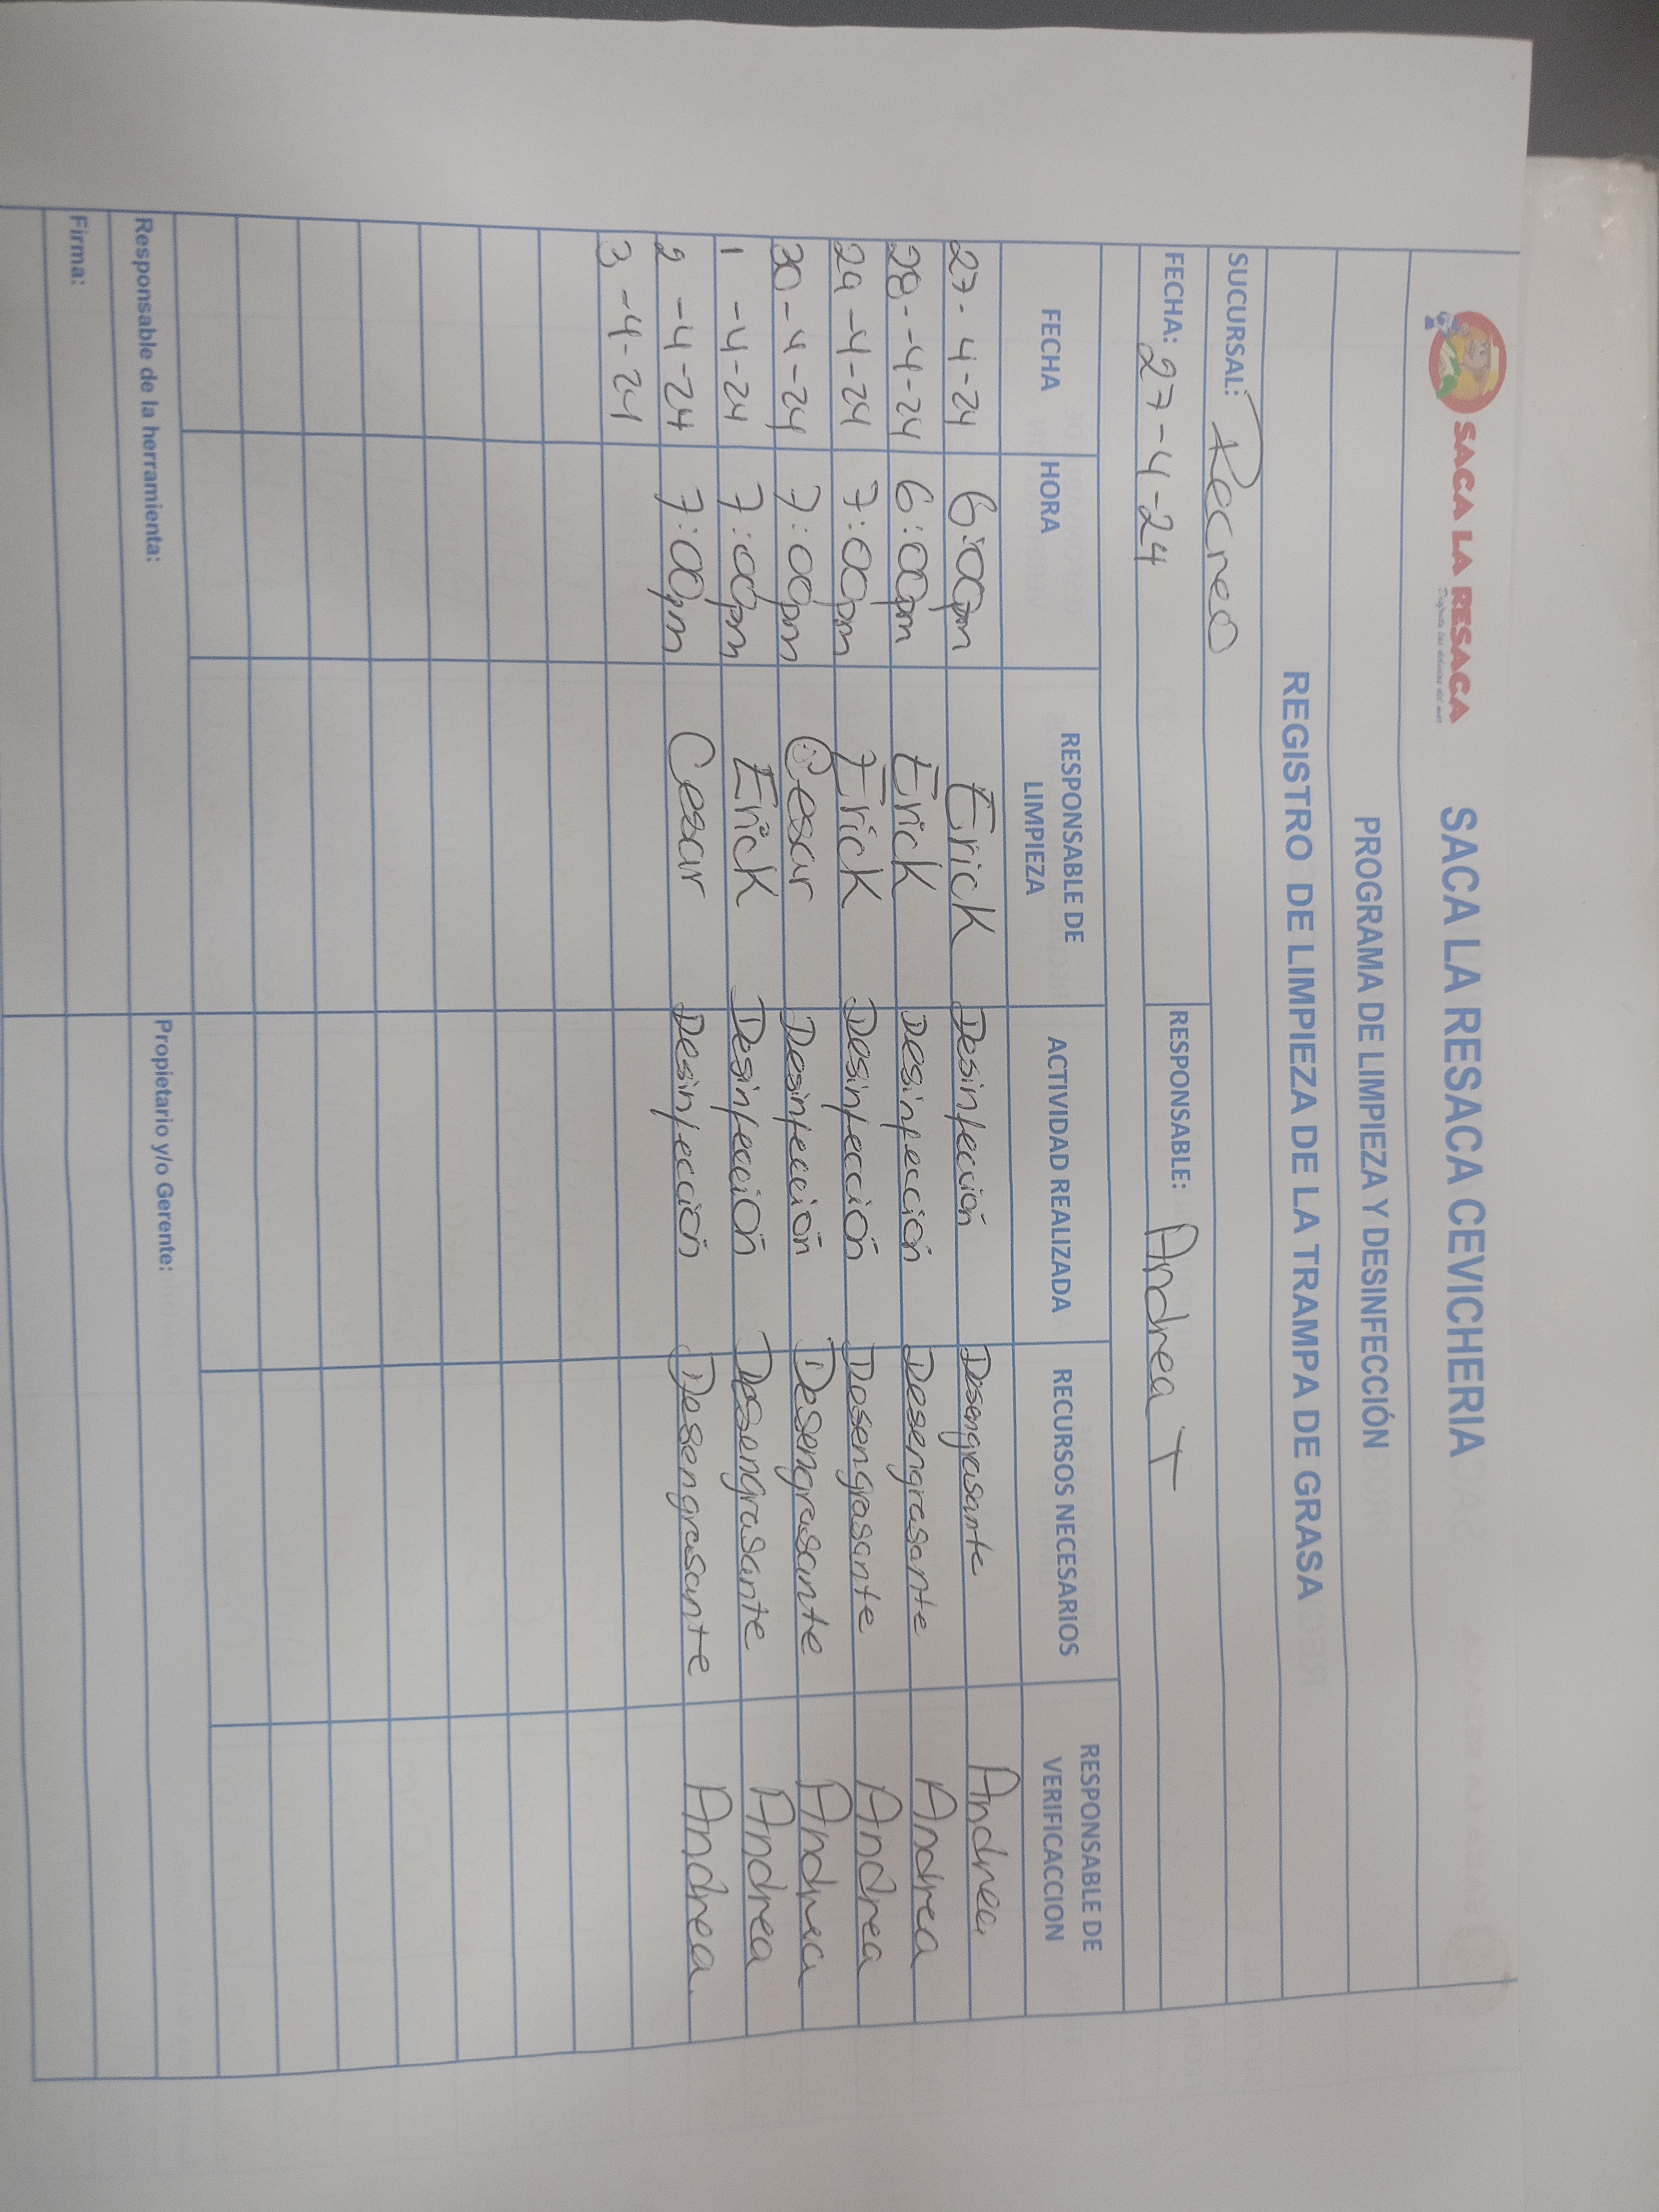 SACA LA RESACA SACA LA RESACA CEVICHERIA
PROGRAMA DE LIMPIEZA Y DESINFECCIÓN
REGISTRO DE LIMPIEZA DE LA TRAMPA DE GRASA
SUCURSAL: Recreo
FECHA: 27-4-24 RESPONSABLE: Andrea T
FECHA HORA RESPONSABLE DE LIMPIEZA ACTIVIDAD REALIZADA RECURSOS NECESARIOS RESPONSABLE DE VERIFICACCION
27-4-24 6:00pm Erick Desinfección Desengrasante Andrea
28-4-24 6:00pm Erick Desinfección Desengrasante Andrea
29-4-24 7:00pm Erick Desinfección Desengrasante Andrea
30-4-24 7:00pm Cesar Desinfección Desengrasante Andrea
1-4-24 7:00pm Erick Desinfección Desengrasante Andrea
2-4-24 7:00pm Cesar Desinfección Desengrasante Andrea
3-4-24
Responsable de la herramienta: Propietario y/o Gerente:
Firma: